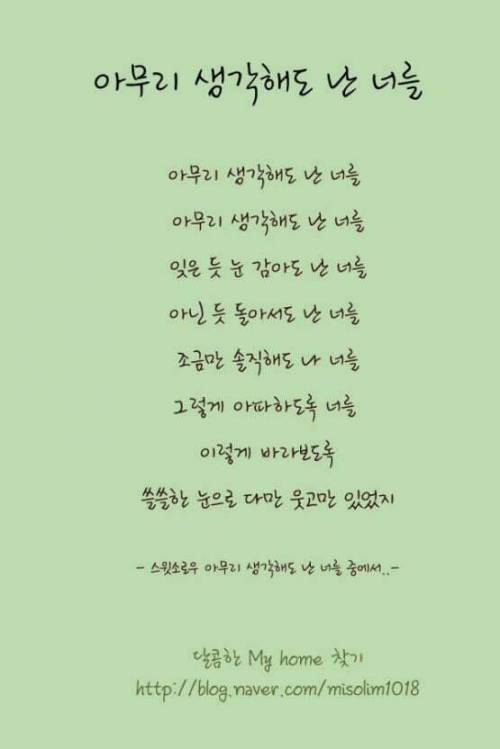 아무리 생각해도 난 너를
아무리 생각해도 난 너를
아무리 생각해도 난 너를
잊은 듯 눈 감아도 난 너를
아닌 듯 돌아서도 난 너를
조금만 솔직해도 나 너를
그렇게 아파하도록 너를
이렇게 바라보도록
쓸쓸한 눈으로 다만 웃고만 있었지
- 스윗소로우 아무리 생각해도 난 너를 중에서..-
달콤한 My home 찾기
http://blog.naver.com/misolim1018